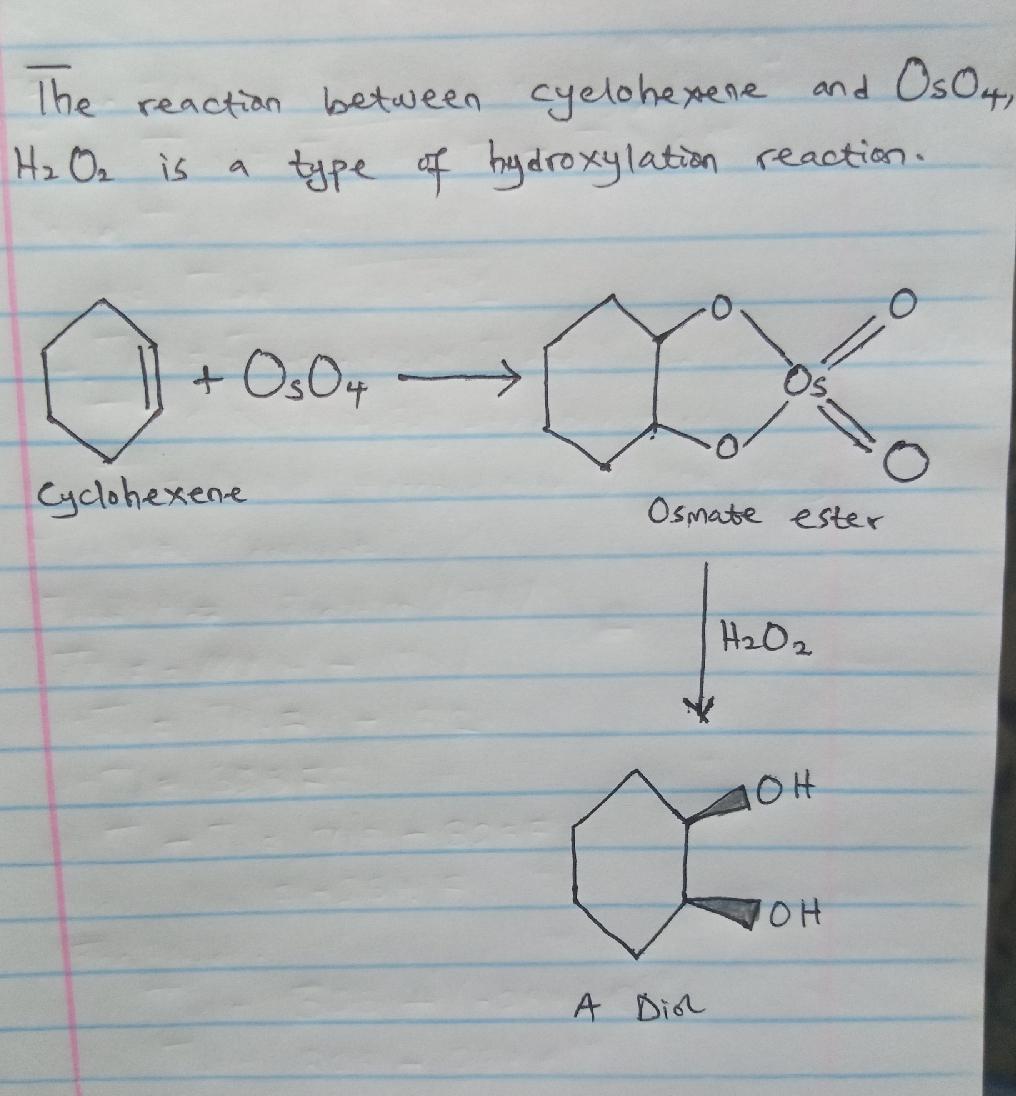 The reaction between cyclohexene and OsO₄,
H₂O₂ is a type of hydroxylation reaction.
+ OsO₄
O
O
Os
O
O
Cyclohexene
Osmate ester
H₂O₂
OH
OH
A Diol